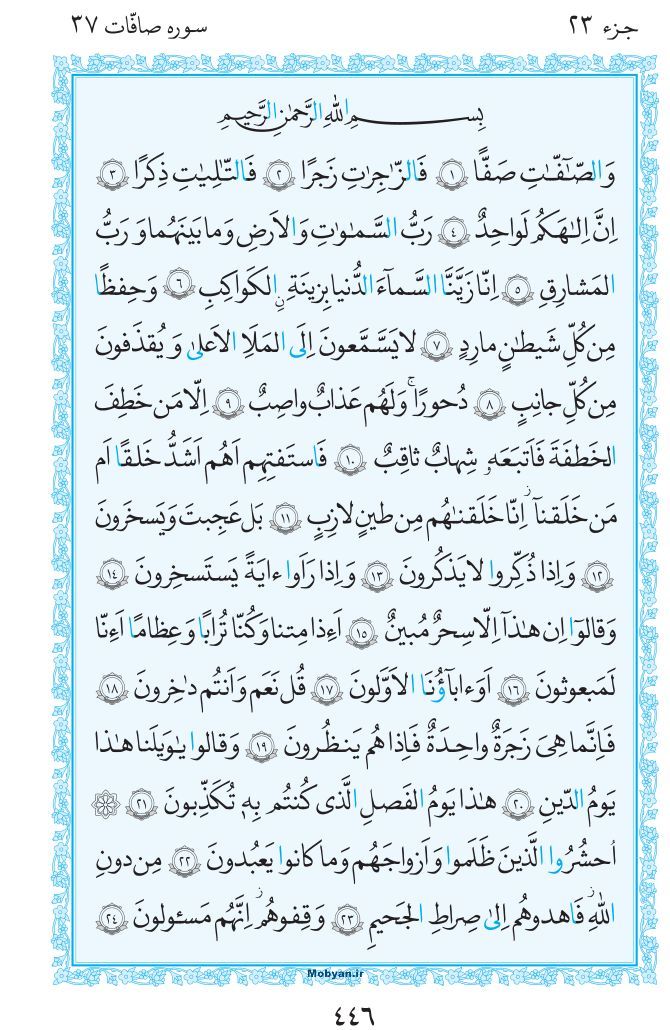 جزء ۲۳
سوره صافّات ۳۷
بِسمِ اللهِ الرَّحمٰنِ الرَّحیمِ
وَالصّٰٓفّٰتِ صَفًّا ﴿۱﴾ فَالزّٰجِرٰتِ زَجرًا ﴿۲﴾ فَالتّٰلِیٰتِ ذِکرًا ﴿۳﴾
اِنَّ اِلٰهَکُم لَواحِدٌ ﴿۴﴾ رَبُّ السَّمٰوٰتِ وَالاَرضِ وَما بَینَهُما وَ رَبُّ
المَشارِقِ ﴿۵﴾ اِنّا زَیَّنَّا السَّمآءَ الدُّنیا بِزینَةِ نِ الکَواکِبِ ﴿۶﴾ وَ حِفظًا
مِن کُلِّ شَیطٰنٍ مارِدٍ ﴿۷﴾ لا یَسَّمَّعونَ اِلَی المَلَاِ الاَعلیٰ وَ یُقذَفونَ
مِن کُلِّ جانِبٍ ﴿۸﴾ دُحورًا ۚ وَلَهُم عَذابٌ واصِبٌ ﴿۹﴾ اِلّا مَن خَطِفَ
الخَطفَةَ فَاَتبَعَهۥ شِهابٌ ثاقِبٌ ﴿۱۰﴾ فَاستَفتِهِم اَهُم اَشَدُّ خَلقًا اَم
مَن خَلَقنآ ۚ اِنّا خَلَقنٰهُم مِن طینٍ لازِبٍ ﴿۱۱﴾ بَل عَجِبتَ وَ یَسخَرونَ
﴿۱۲﴾ وَ اِذا ذُکِّروا لا یَذکُرونَ ﴿۱۳﴾ وَ اِذا رَاَوا ءایَةً یَستَسخِرونَ ﴿۱۴﴾
وَ قالوٓا اِن هٰذآ اِلّا سِحرٌ مُبینٌ ﴿۱۵﴾ اَءِذا مِتنا وَ کُنّا تُرابًا وَ عِظامًا اَءِنّا
لَمَبعوثونَ ﴿۱۶﴾ اَوَ ءابآؤُنَا الاَوَّلونَ ﴿۱۷﴾ قُل نَعَم وَ اَنتُم دٰخِرونَ ﴿۱۸﴾
فَاِنَّما هِیَ زَجرَةٌ واحِدَةٌ فَاِذا هُم یَنظُرونَ ﴿۱۹﴾ وَ قالوا یٰوَیلَنا هٰذا
یَومُ الدّینِ ﴿۲۰﴾ هٰذا یَومُ الفَصلِ الَّذی کُنتُم بِهٖ تُکَذِّبونَ ﴿۲۱﴾ ۞
اُحشُرُوا الَّذینَ ظَلَموا وَ اَزواجَهُم وَ ما کانوا یَعبُدونَ ﴿۲۲﴾ مِن دونِ
اللهِ فَاهدوهُم اِلیٰ صِراطِ الجَحیمِ ﴿۲۳﴾ وَ قِفوهُم اِنَّهُم مَسئولونَ ﴿۲۴﴾
Mobyan.ir
۴۴۶